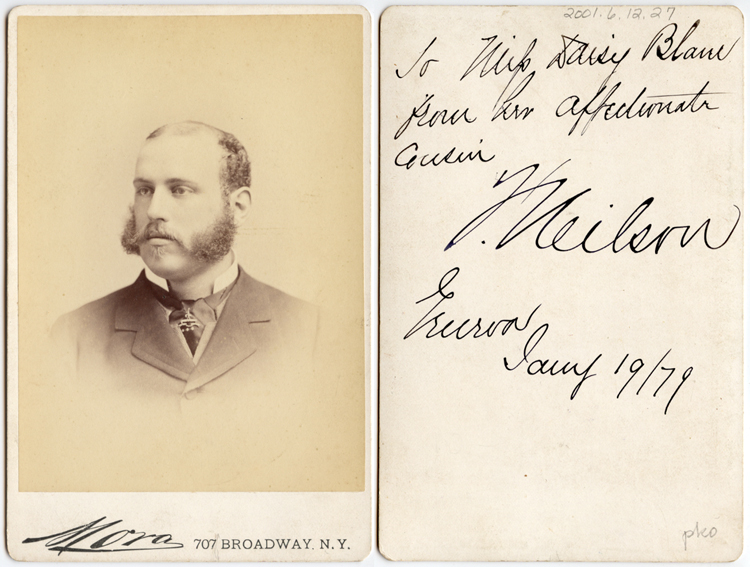 Mora 707 BROADWAY. N.Y.
2001.6.12.27
To Miss Daisy Blane
from her affectionate
Cousin
F. Neilson
Jany 19/79
pko